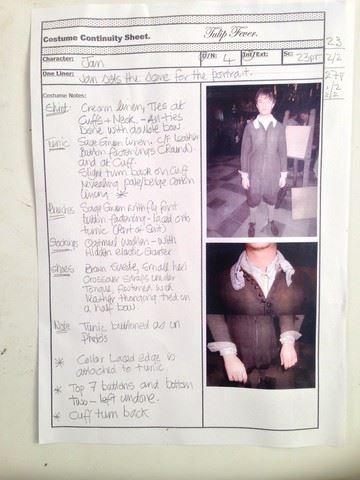 Costume Continuity Sheet. Tulip Fever.
23
Character: Jan D/N: 4 Int/Ext: Sc: 23pt 2/2
One Liner: Jan sets the scene for the portrait. 27pt
2/2
2/2
Costume Notes:
Shirt Cream linen, Ties at
Cuffs + Neck - All ties
Done with double bow
Tunic Sage Green linen. C/F leather
Button fastenings (Round)
and at Cuff.
Slight turn back on Cuff
Revealing pale/beige Cotton
lining *
Breeches Sage Green with fly font
button fastening - laced onto
tunic (Part of Suit)
Stockings Oatmeal woollen - with
Hidden elastic Garter
Shoes Brown Suede, Small heel
Crossover straps under
Tongue, fastened with
leather thonging tied in
a half bow.
Note Tunic buttoned as in
Photos
* Collar laced edge is
attached to tunic.
* Top 7 buttons and bottom
two - left undone.
* Cuff turn back